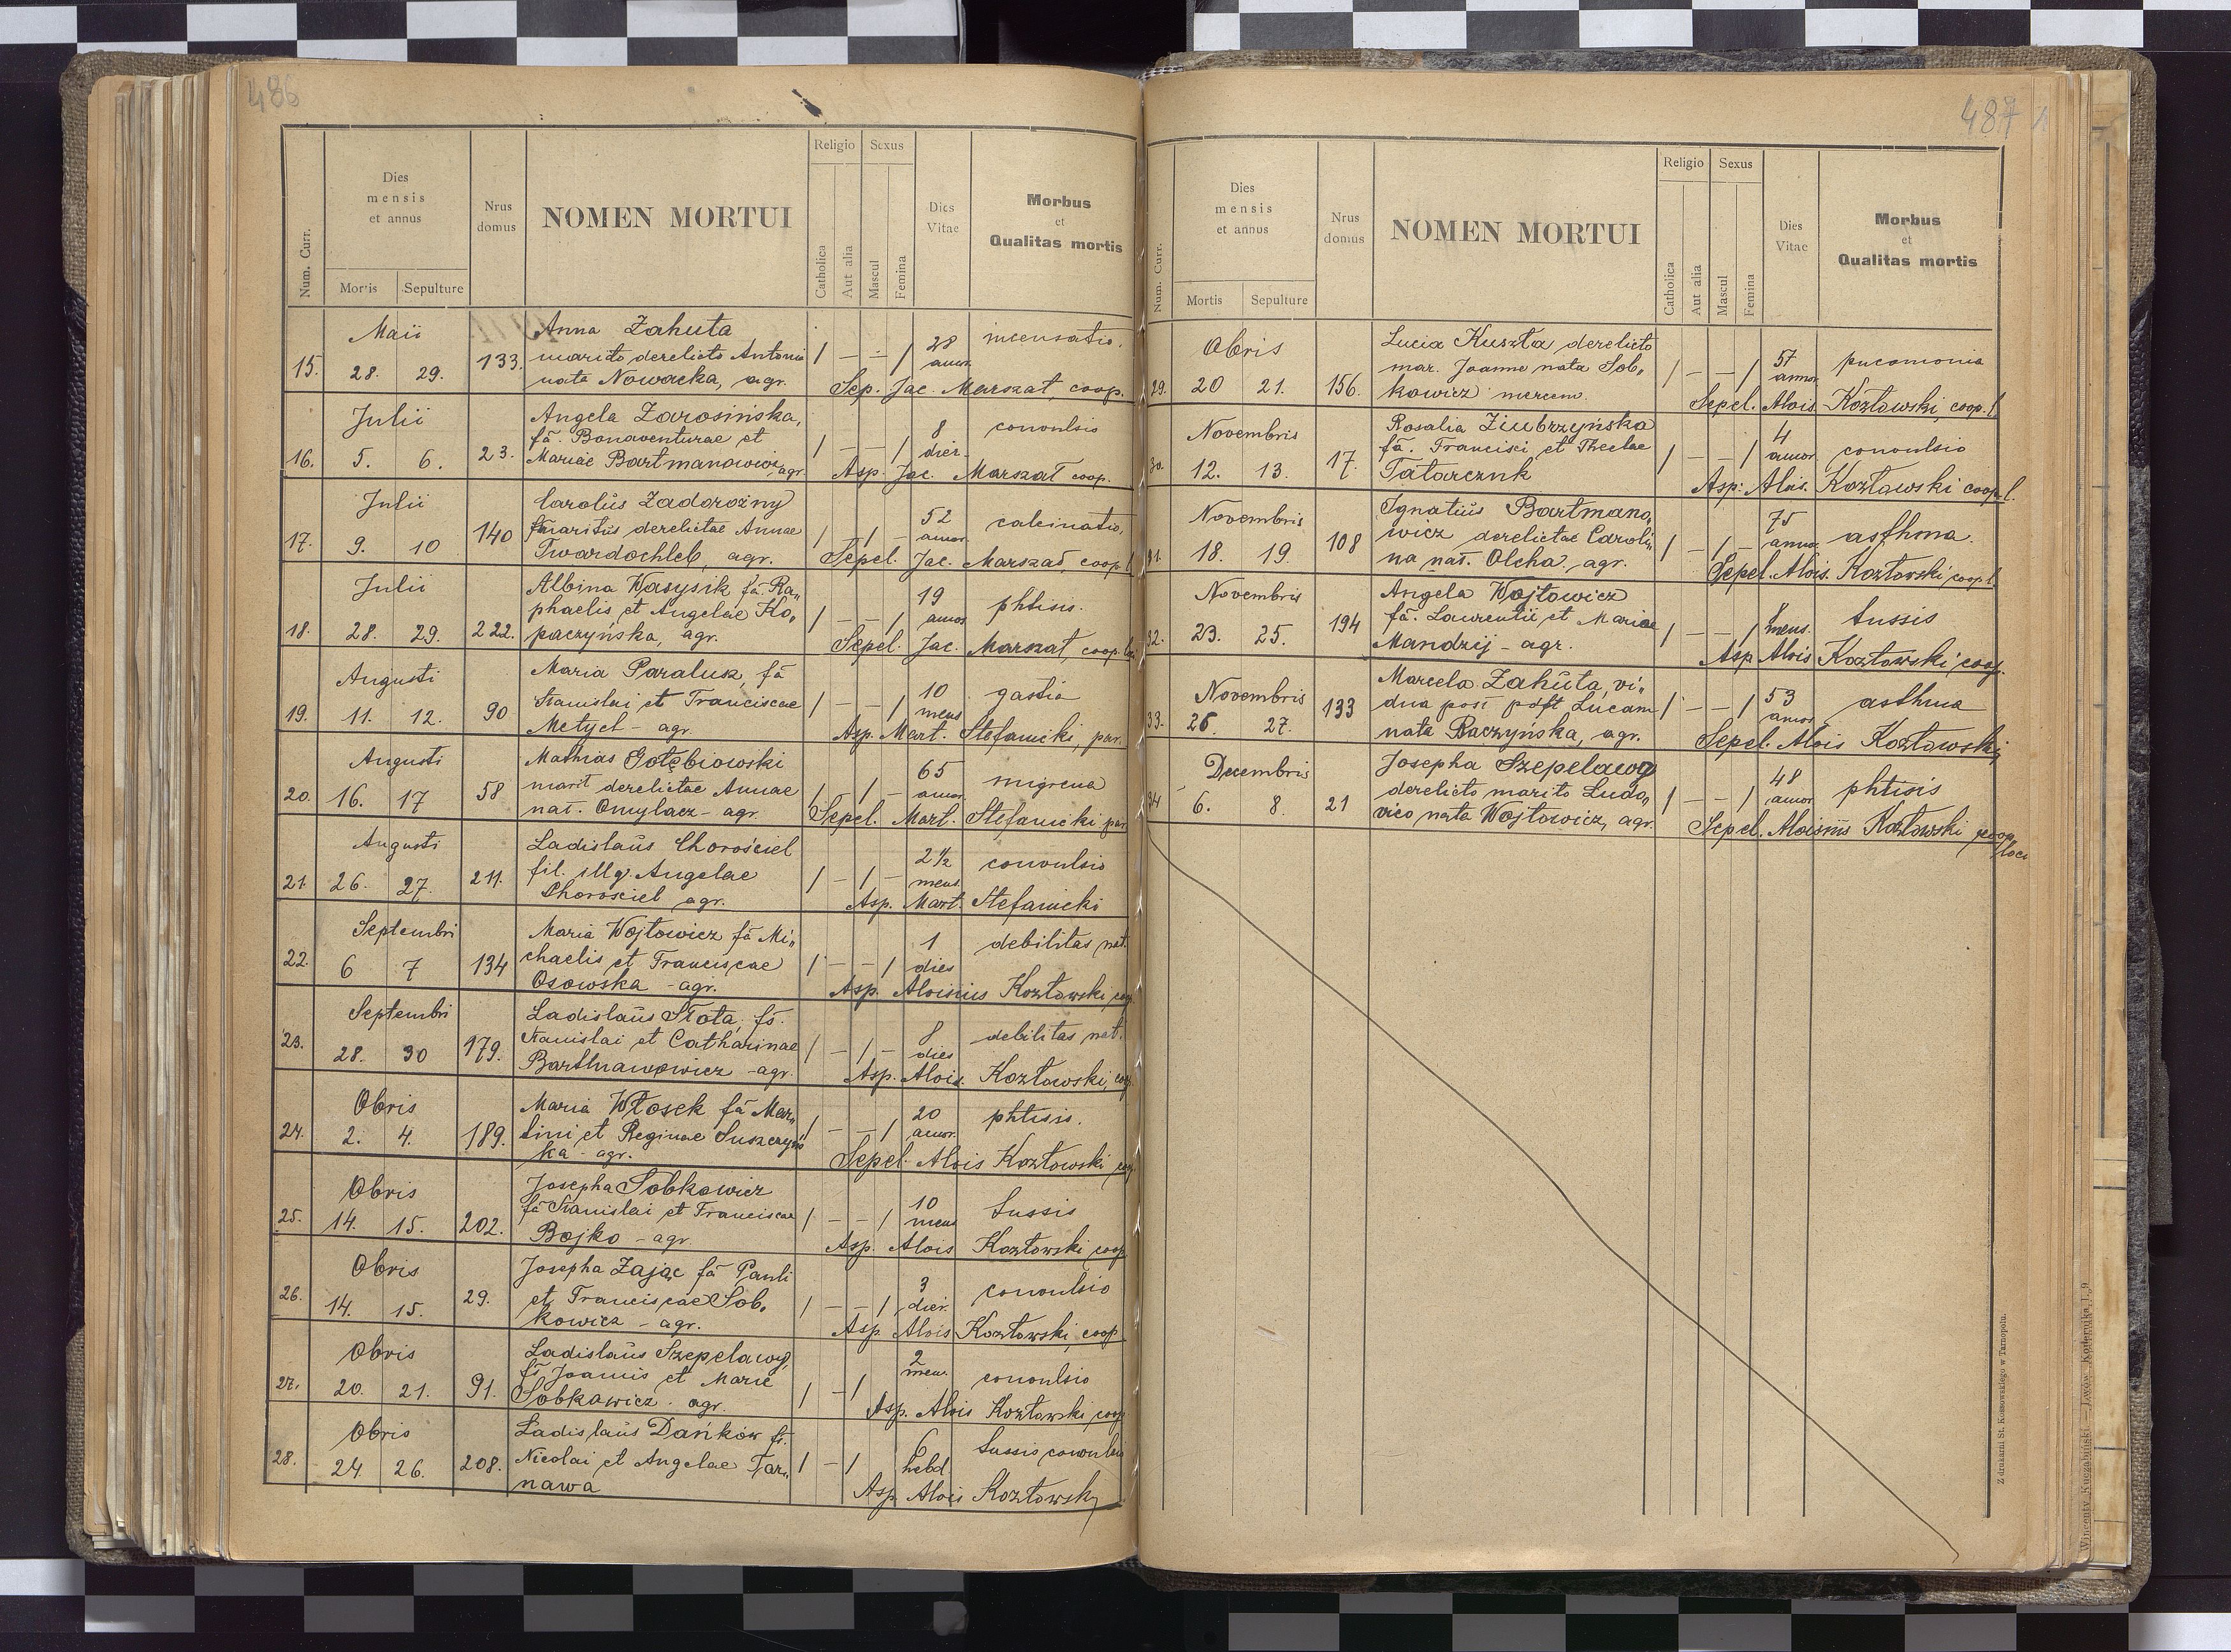 486
Religio Sexus
Dies mensis et annus
Nrus domus
NOMEN MORTUI
Dies Vitae
Morbus et Qualitas mortis
Num. Curr.
Mortis Sepulture
Catholica Aut alia Mascul Femina
Maii
15. 28. 29. 133.
Anna Zahuta
marito derelicto Antonio
nata Nowacka, agr.
/ — — / 28 annor.
Sep. Jac. Marszał, coop.
Julii
16. 5. 6. 23.
Angela Zarosińska,
fā. Bonaventurae et
Mariae Bartmanowicz, agr.
/ — — / 8 dier. convulsio
Asp. Jac. Marszał coop.
Julii
17. 9. 10 140
Carolus Zadorożny
maritus derelictae Annae
Twardochleb, agr.
/ — / — 52 annor. calcinatio,
Sepel. Jac. Marszał, coop. l.
Julii
18. 28. 29. 222.
Albina Wasysik fā. Ra„
phaelis et Angelae Kło„
paczyńska, agr.
/ — — / 19 annor. phtisis.
Sepel. Jac. Marszał, coop.
Augusti
19. 11. 12. 90
Maria Paraluk, fā
Stanislai et Franciscae
Metyel - agr.
/ — — / 10 mens gastia
Asp. Mart. Stefanicki, par.
Augusti
20. 16. 17 58
Mathias Gołębiowski
marit derelictae Annae
nat. Omylacz - agr.
/ — / — 65 annor. migrena
Sepel. Mart. Stefanicki par.
Augusti
21. 26. 27. 211.
Ladislaus Chorościel
fil. illg. Angelae
Chorościel agr.
/ — / — 2½ mens. convulsio
Asp. Mart. Stefanicki
Septembri
22. 6 7 134
Maria Wojtowicz fā Mi„
chaelis et Franciscae
Osowska - agr.
/ — — / 1 dies debilitas nat.
Asp. Aloisius Kozłowski, coop.
Septembri
23. 28. 30 179.
Ladislaus Słota, fs.
Stanislai et Catharinae
Bartmanowicz - agr.
/ — / — 8 dies debilitas nat.
Asp. Alois. Kozłowski, coop.
Obris
24. 2. 4. 189.
Maria Włosek fā Mar„
tini et Reginae Suszczyńs
ka - agr.
/ — — / 20 annor. phtisis.
Sepel. Alois Kozłowski, coop.
Obris
25. 14. 15. 202.
Josepha Sobkowicz
fā Stanislai et Franciscae
Bojko - agr.
/ — — / 10 mens tussis
Asp. Alois Kozłowski coop
Obris
26. 14. 15. 29.
Josepha Zając fā Pauli
et Franciscae Sob„
kowicz - agr.
/ — — / 3 dier. convulsio
Asp. Alois Kozłowski, coop
Obris
27. 20. 21. 91.
Ladislaus Szepelawy,
fs Joannis et Marie
Sobkowicz. agr.
/ — / 2 mens. convulsio
Asp. Alois Kozłowski, coop
Obris
28. 24 26. 208.
Ladislaus Dańków fs.
Nicolai et Angelae Tar„
nawa
/ — / 6 hebd. tussis convulsio
Asp. Alois Kozłowski
487
Religio Sexus
Dies mensis et annus
Nrus domus
NOMEN MORTUI
Dies Vitae
Morbus et Qualitas mortis
Num. Curr.
Mortis Sepulture
Catholica Aut alia Mascul Femina
Obris
29. 20 21. 156.
Lucia Kuszta derelicto
mar. Joanne nata Sob„
kowicz mercen.
/ — — / 57 annor. pneomonia
Sepel. Alois. Kozłowski, coop. l.
Novembris
30. 12. 13. 17.
Rosalia Ziubrzyńska
fā. Francisci et Theclae
Tatarczuk
/ — — / 4 annor. convulsio
Asp. Alois. Kozłowski coop. l.
Novembris
31. 18. 19. 108
Ignatius Bartmano„
wicz derelictae Caroli„
na nat. Olcha, agr.
/ — / — 75 annor. asthma.
Sepel. Alois. Kozłowski coop. l.
Novembris
32. 23. 25. 194
Angela Wojtowicz
fā. Laurentii et Mariae
Mandzij - agr.
/ — — / 8 mens. tussis
Asp Alois Kozłowski, coop.
Novembris
33. 26. 27. 133
Marcela Zahuta, vi„
dua post post Lucam
nata Baczyńska, agr.
/ — — / 53 annor asthma
Sepel. Alois Kozłowski,
Decembris
34 6. 8. 21
Josepha Szepelawy
derelicto marito Ludo„
vico nata Wojtowicz, agr.
/ — — / 48 annor phtisis
Sepel. Aloisius Kozłowski coop. loci
Z drukarni St. Kossowskiego w Tarnopolu.
Wincenty Kuczabiński — Lwów, Kopernika l. 9